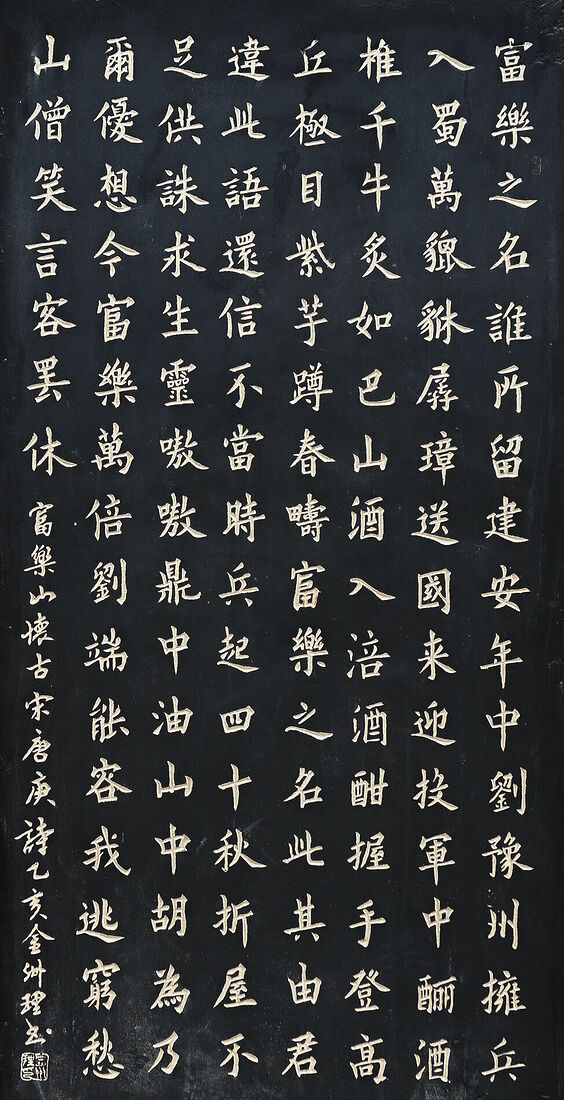 富樂之名誰所留建安年中劉豫州擁兵
入蜀萬貔貅孱璋送國来迎投軍中酾酒
椎千牛炙如巴山酒入涪酒酣握手登高
丘極目紫芋蹲春疇富樂之名此其由君
違此語還信不當時兵起四十秋折屋不
足供誅求生靈嗷嗷鼎中油山中胡為乃
爾優想今富樂萬倍劉端能容我逃窮愁
山僧笑言客罢休
富樂山懷古宋唐庚詩乙亥金州理书